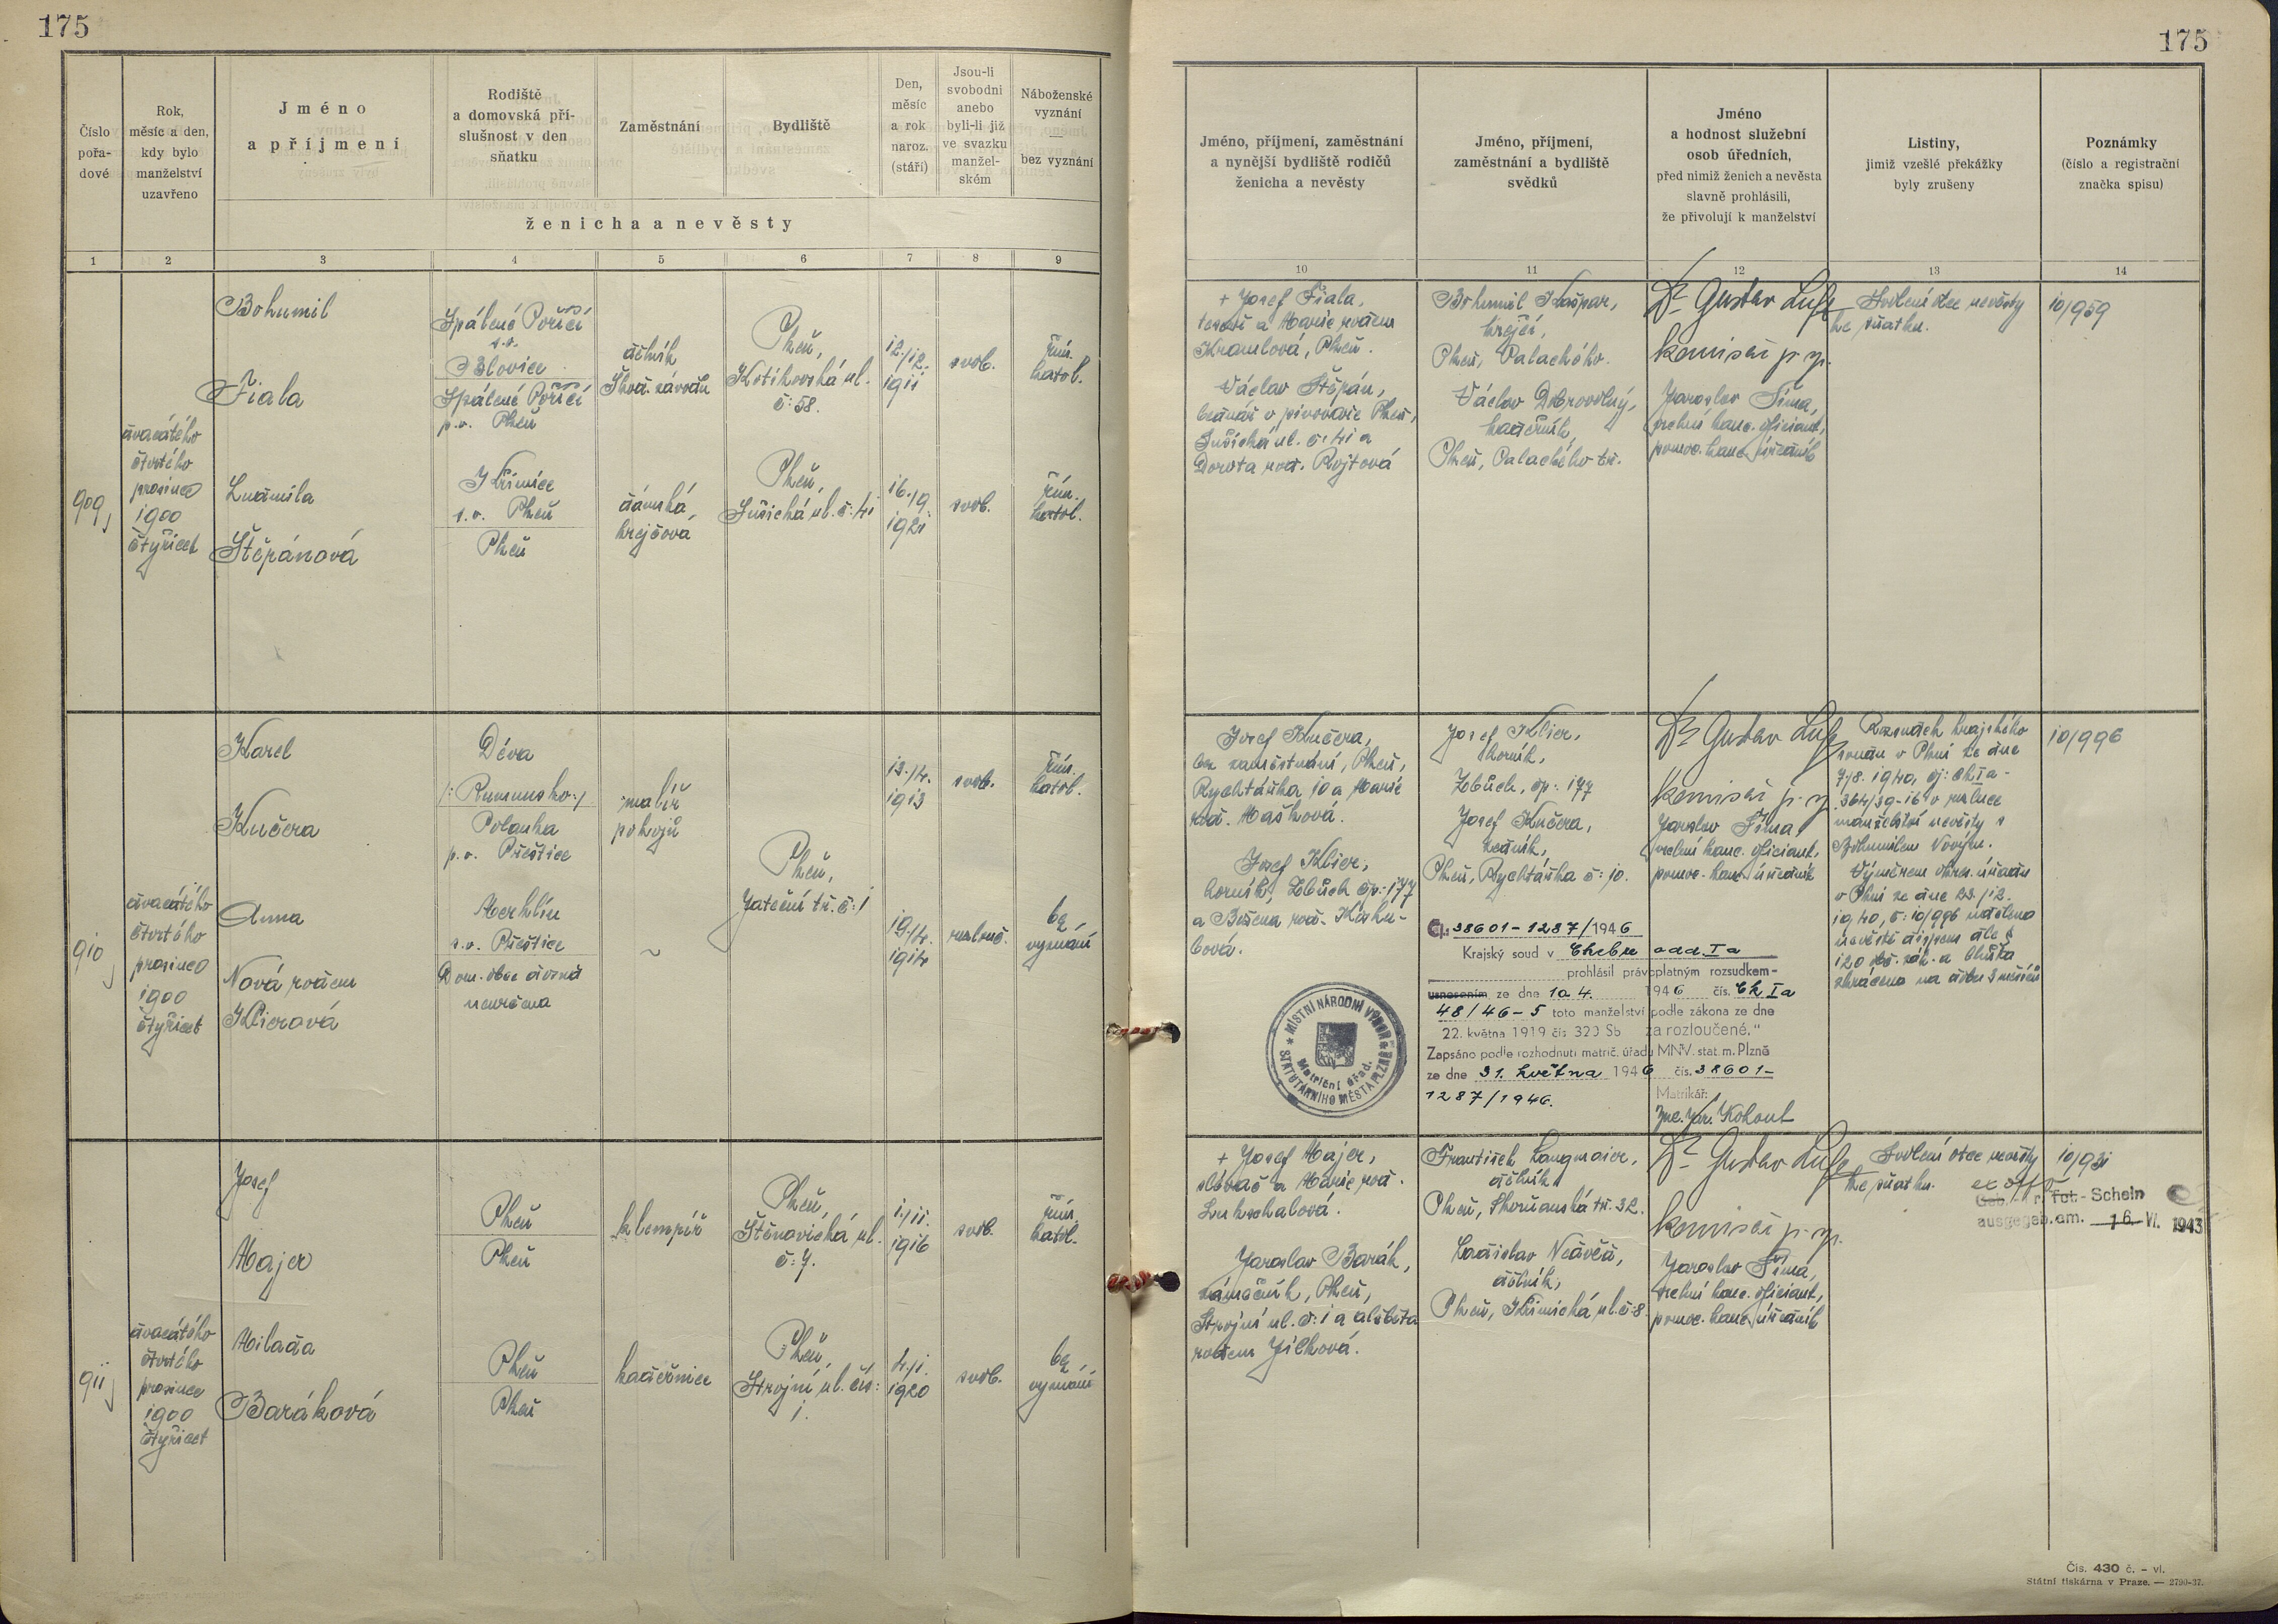 175
175
Číslo
pořa-
dové
Rok,
měsíc a den,
kdy bylo
manželství
uzavřeno
Jméno
a příjmení
Rodiště
a domovská pří-
slušnost v den
sňatku
Zaměstnání
Bydliště
Den,
měsíc
a rok
naroz.
(stáří)
Jsou-li
svobodni
anebo
byli-li již
ve svazku
manžel-
ském
Náboženské
vyznání
—
bez vyznání
ženicha a nevěsty
1 2 3 4 5 6 7 8 9
Jméno, příjmení, zaměstnání
a nynější bydliště rodičů
ženicha a nevěsty
Jméno, příjmení,
zaměstnání a bydliště
svědků
Jméno
a hodnost služební
osob úředních,
před nimiž ženich a nevěsta
slavně prohlásili,
že přivolují k manželství
Listiny,
jimiž vzešlé překážky
byly zrušeny
Poznámky
(číslo a registrační
značka spisu)
10 11 12 13 14
909
dvacátého
čtvrtého
prosince
1900
čtyřicet
Bohumil
Fiala
Spálené Poříčí
s.o.
Blovice
Spálené Poříčí
p.o. Plzeň
dělník
Škod. závodů
Plzeň,
Kotíkovská ul.
č: 58.
12./12.
1911
svob.
řím.
katol.
Ludmila
Štěpánová
Křimice
s.o. Plzeň
Plzeň
dámská
krejčová
Plzeň,
Sušická ul. č: 41
16./9.
1921
svob.
řím.
katol.
+ Josef Fiala,
tesař a Marie rozen
Kramlová, Plzeň.
Václav Štěpán,
bednář v pivovaře Plzeň,
Sušická ul. č: 41 a
Dorota roz. Rojtová
Bohumil Kašpar,
krejčí,
Plzeň, Palackého.
Václav Dobrovolný,
kadeřník,
Plzeň, Palackého tř.
Dr. Gustav
komisař p. m.
Jaroslav Šíma,
vrchní kanc. oficiant,
pomoc. kanc. úředník
Svolení otce nevěsty
ke sňatku.
10/959
910
dvacátého
čtvrtého
prosince
1900
čtyřicet
Karel
Kučera
Déva
/: Rumunsko :/
Polanka
p.o. Přeštice
malíř
pokojů
13./4.
1913
svob.
řím.
katol.
Plzeň,
Jateční tř. č: 1
Anna
Nová rozen
Klierová
Merklín
s.o. Přeštice
Dom. obec dosud
neurčena
~
19./4.
1914
rozlouč.
bez
vyznání
Josef Kučera,
bez zaměstnání, Plzeň,
Rychtářka 10 a Marie
roz. Mašková.
Josef Klier,
horník, Zbůch čp: 177
a Božena roz.
Josef Klier,
horník,
Zbůch, čp: 177
Josef Kučera,
Plzeň, Rychtářka č: 10.
Dr. Gustav
komisař p. m.
Jaroslav Šíma,
vrchní kanc. oficiant,
pomoc. kanc. úředník
Rozsudek krajského
soudu v Plzni ze dne
7/8. 1940, čj: Ck Ia-
364/39-16 o rozluce
manželství nevěsty s
Bohumilem Novým.
Výměrem okres. úřadu
v Plzni ze dne 23./12.
1940, č: 10/996 udělena
nevěstě dispens dle §
120 obč. zák. a lhůta
zkrácena na dobu 3 měsíců
10/996
Čj. 38601-1287/1946
Krajský soud v Chebu odd. Ia
prohlásil právoplatným rozsudkem-
usnesením ze dne 10.4. 1946 čís. Ck Ia
48/46-5 toto manželství podle zákona ze dne
22. května 1919 čís 320 Sb „za rozloučené."
Zapsáno podle rozhodnutí matrič. úřadu MNV. stat. m. Plzně
ze dne 31. května 1946 čís. 38601-
1287/1946.
Matrikář:
Jar. Kohout
MÍSTNÍ NÁRODNÍ VÝBOR
STATUTÁRNÍHO MĚSTA PLZNĚ
Matriční úřad.
911
dvacátého
čtvrtého
prosince
1900
čtyřicet
Josef
Majer
Plzeň
Plzeň
klempíř
Plzeň,
Štěnovická ul.
č: 7.
1./11.
1916
svob.
řím.
katol.
Milada
Baráková
Plzeň
Plzeň
kadeřnice
Plzeň,
Strojní ul. čís:
1.
4./1.
1920
svob.
bez
vyznání
+ Josef Majer,
slévač a Marie roz.
Jaroslav Barák,
zámečník, Plzeň,
Strojní ul. č: 1 a Alžběta
rozen Jílková.
František Langmaier,
dělník,
Plzeň, Skvrňanská tř. 32.
Ladislav Nedvěd,
dělník,
Plzeň, Křimická ul. č: 8.
Dr. Gustav
komisař p. m.
Jaroslav Šíma,
vrchní kanc. oficiant,
pomoc. kanc. úředník
Svolení otce nevěsty
ke sňatku.
10/931
ex offo
Geb. - Tr. - Tot.- Schein
ausgegeb. am. 16. VI. 1943
Čís. 430 č. - vl.
Státní tiskárna v Praze. — 2790-37.